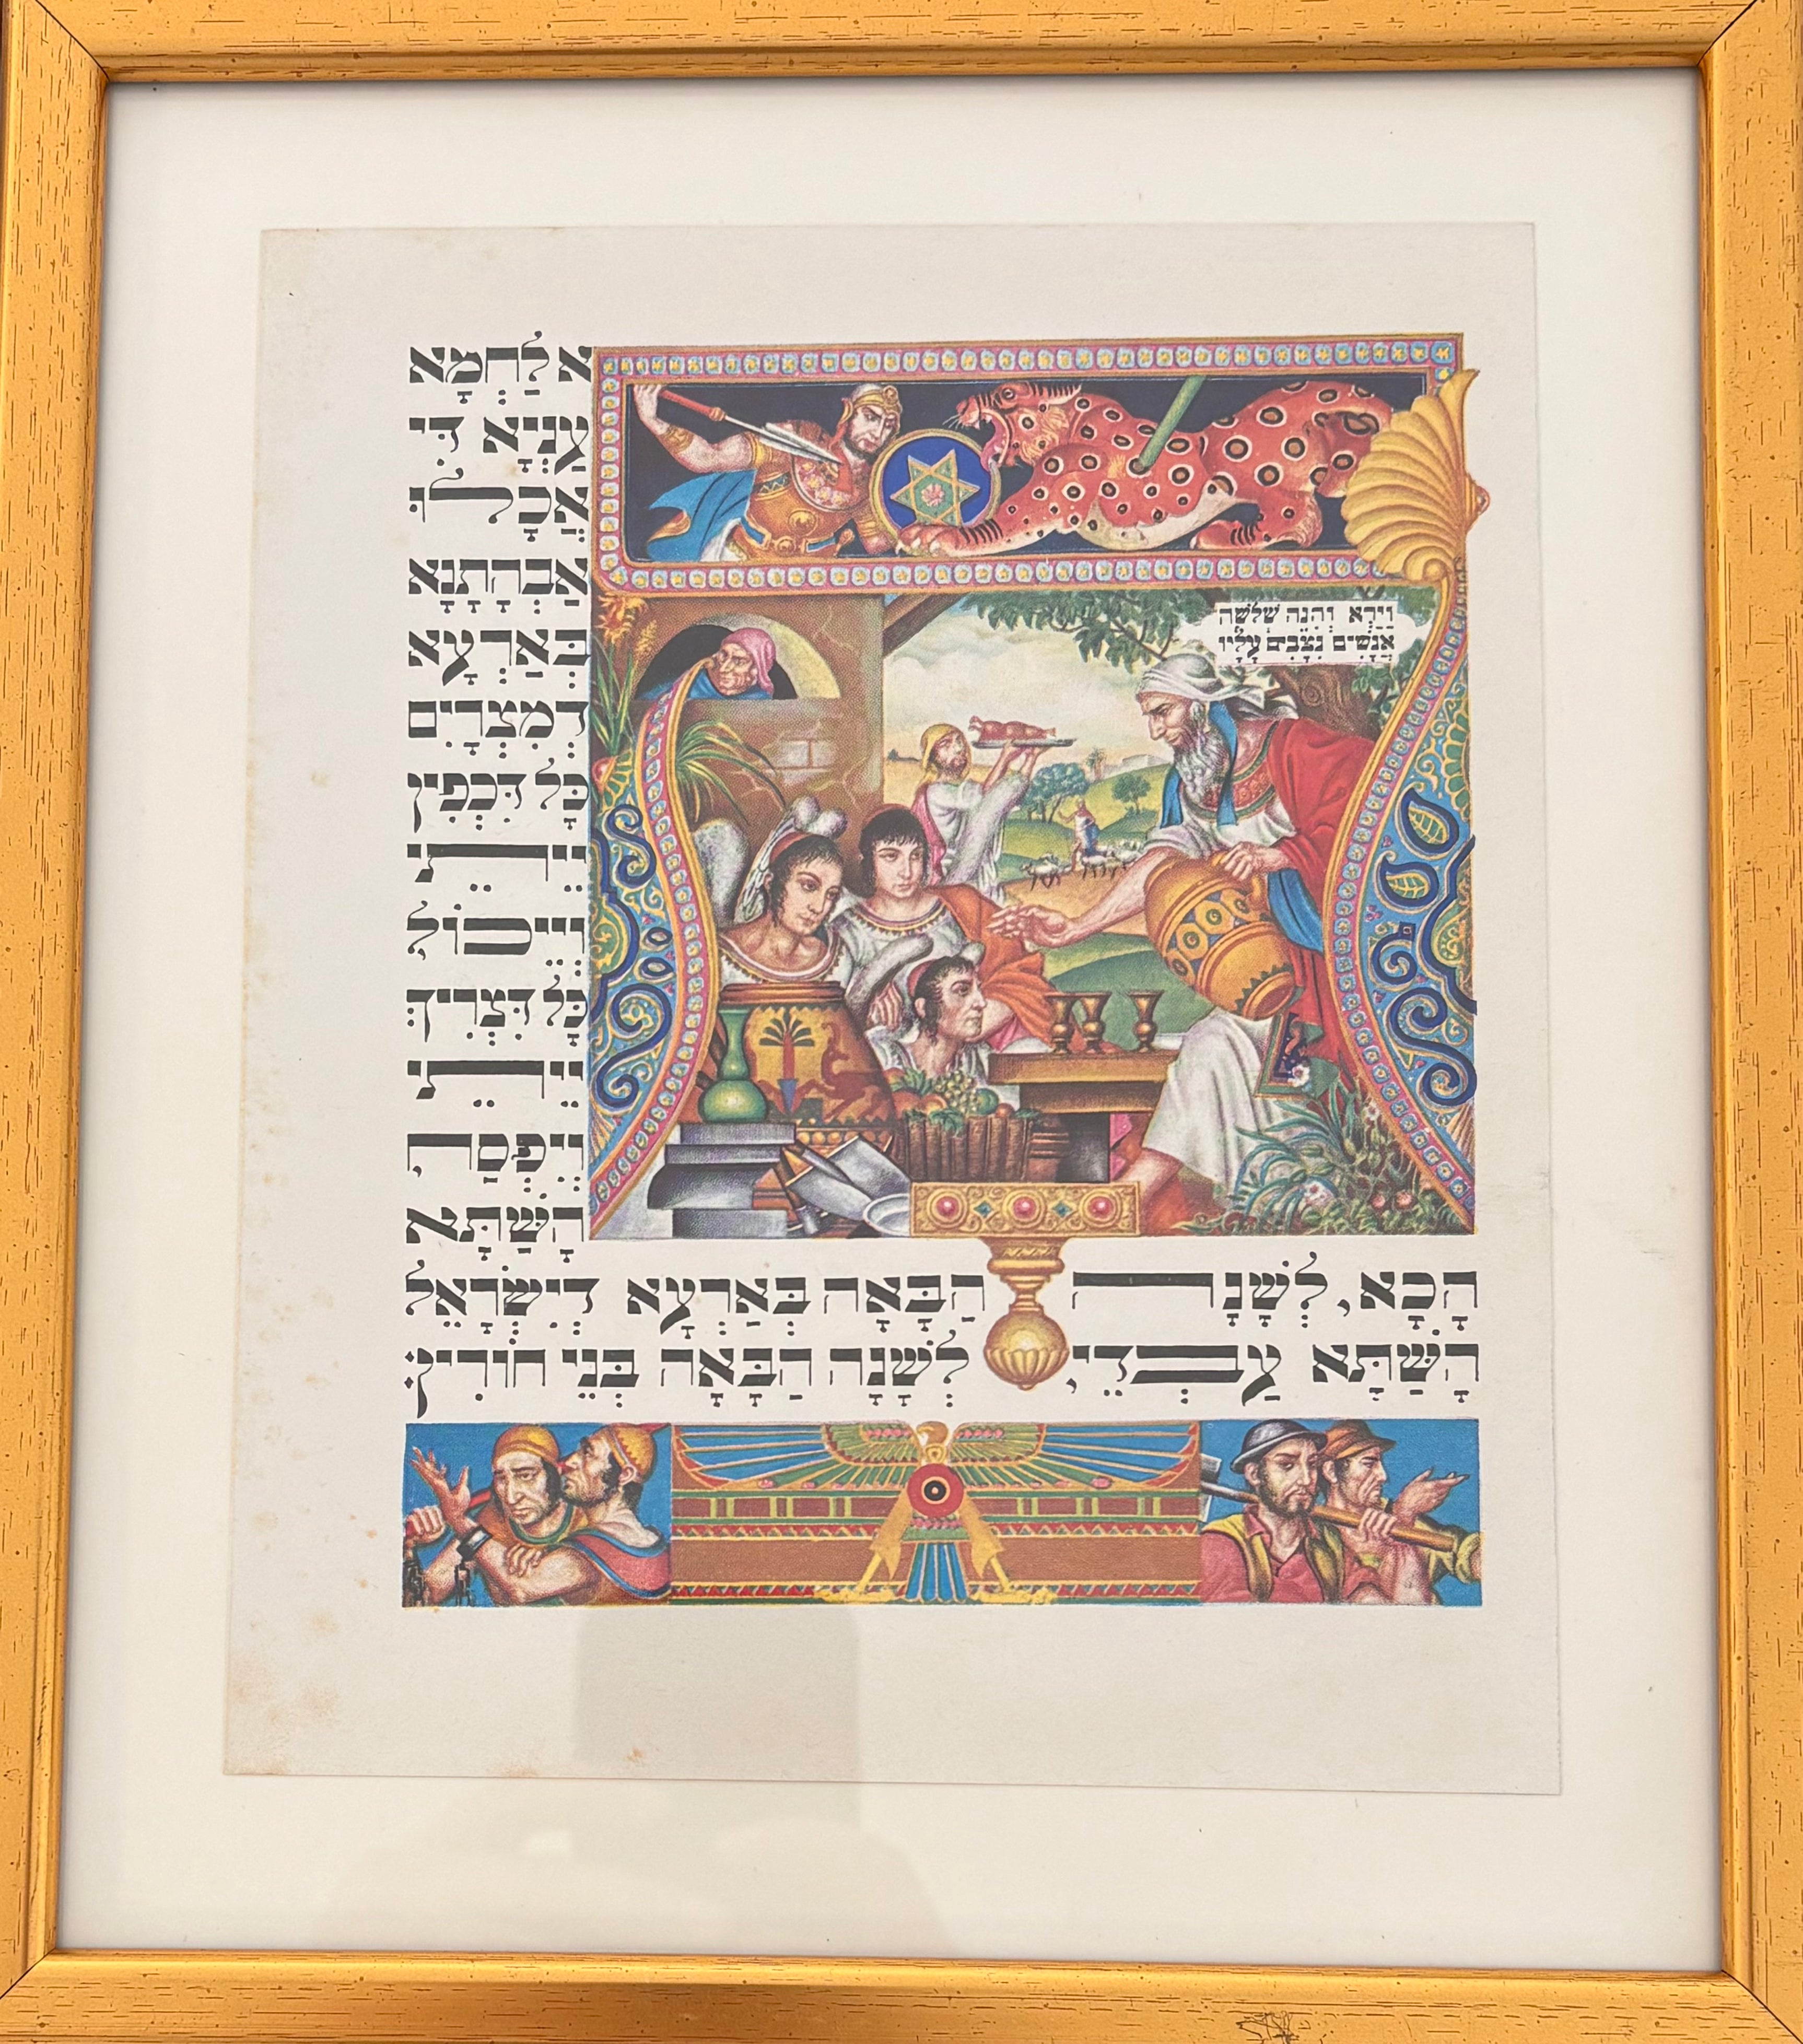 הא לַחְמָא
עַנְיָא דִּי
אֲכָלוּ
אַבְהָתָנָא
בְּאַרְעָא
דְמִצְרָיִם
כָּל דִּכְפִין
יֵיתֵי
וְיֵיכוֹל
כָּל דִּצְרִיךְ
יֵיתֵי
וְיִפְסַח
הָשַׁתָּא
הָכָא, לְשָׁנָה הַבָּאָה בְּאַרְעָא דְיִשְׂרָאֵל
הָשַׁתָּא עַבְדֵי, לְשָׁנָה הַבָּאָה בְּנֵי חוֹרִין׃
וַיַּרְא וְהִנֵּה שְׁלֹשָׁה
אֲנָשִׁים נִצָּבִים עָלָיו